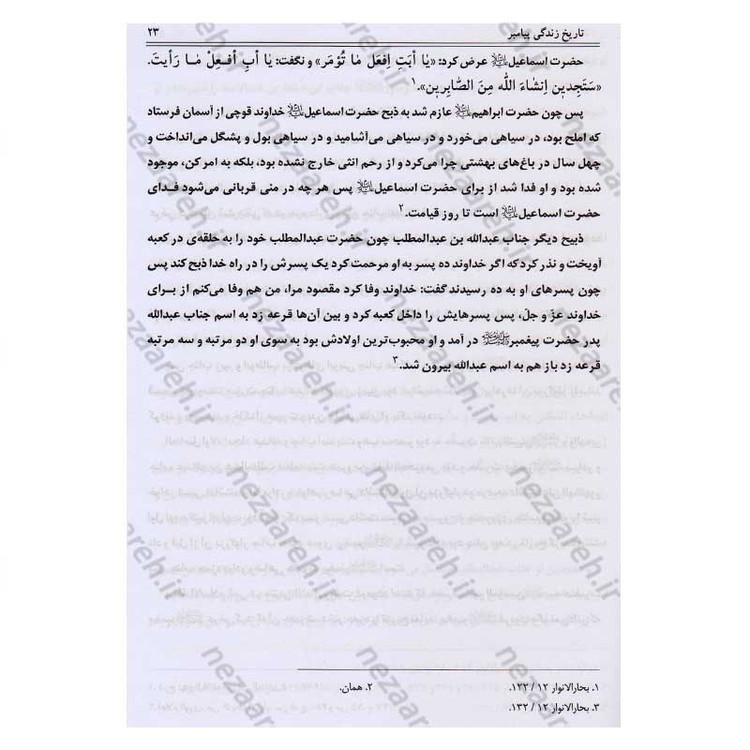 تاریخ زندگی پیامبر ۲۳
حضرت اسماعیل عرض کرد: «یٰا أبَتِ اِفعَل مٰا تُؤمَر» و نگفت: یٰا أبِ أفعِلْ مٰا رأیتَ.
«سَتَجِدنِي إنشٰاءَ اللّٰه مِنَ الصّٰابِرینِ».۱
پس چون حضرت ابراهیم عازم شد به ذبح حضرت اسماعیل خداوند قوچی از آسمان فرستاد
که املح بود، در سیاهی می‌خورد و در سیاهی می‌آشامید و در سیاهی بول و پشگل می‌انداخت و
چهل سال در باغ‌های بهشتی چرا می‌کرد و از رحم انثی خارج نشده بود، بلکه به امر کن، موجود
شده بود و او فدا شد از برای حضرت اسماعیل پس هر چه در منی قربانی می‌شود فدای
حضرت اسماعیل است تا روز قیامت.۲
ذبیح دیگر جناب عبدالله بن عبدالمطلب چون حضرت عبدالمطلب خود را به حلقه‌ی در کعبه
آویخت و نذر کرد که اگر خداوند ده پسر به او مرحمت کرد یک پسرش را در راه خدا ذبح کند پس
چون پسرهای او به ده رسیدند گفت: خداوند وفا کرد مقصود مرا، من هم وفا می‌کنم از برای
خداوند عزّ و جلّ، پس پسرهایش را داخل کعبه کرد و بین آن‌ها قرعه زد به اسم جناب عبدالله
پدر حضرت پیغمبر در آمد و او محبوب‌ترین اولادش بود به سوی او دو مرتبه و سه مرتبه
قرعه زد باز هم به اسم عبدالله بیرون شد.۳
۱. بحارالانوار ۱۲ / ۱۲۳. ۲. همان.
۳. بحارالانوار ۱۲ / ۱۳۲.
nezaareh.ir